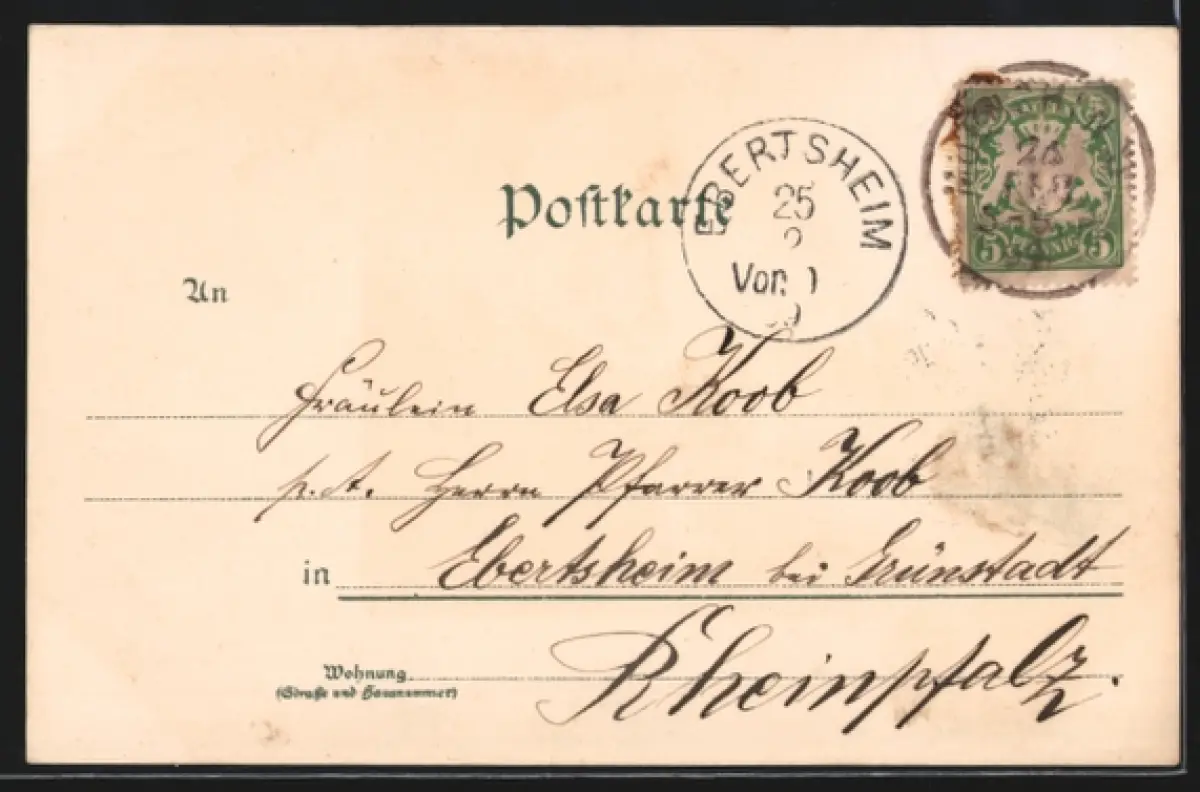 Postkarte
EBERTSHEIM
25
Vor.
BAYERN
5 PFENNIG 5
An
Fräulein Elsa Koob
p. A. Herrn Pfarrer Koob
in Ebertsheim bei Grünstadt
Rheinpfalz.
Wohnung
(Straße und Hausnummer)